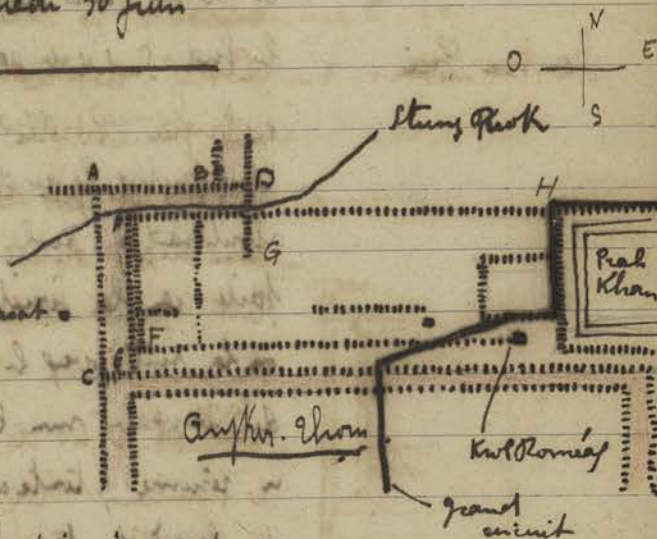 30 juin
N
O E
S
Stung Kwok
A B D
H
G
Prah
Khan
F
E
C
Angkor. Thom
Krol Roméas
grand
circuit